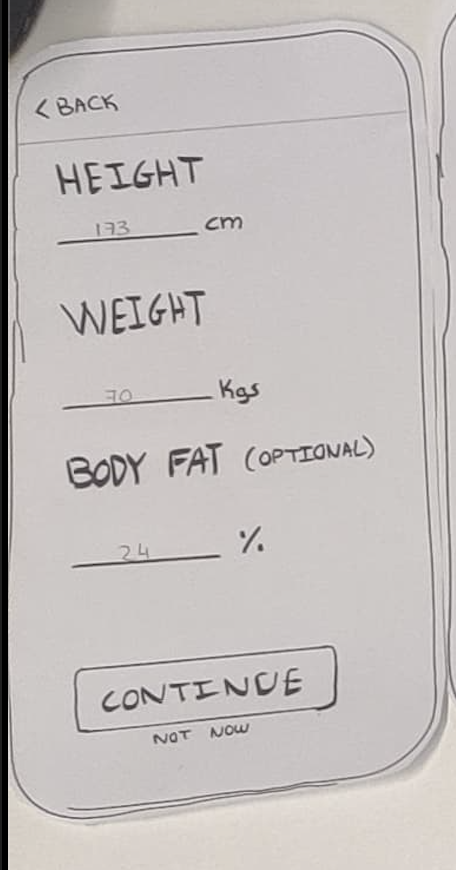 < BACK
HEIGHT
173 cm
WEIGHT
70 Kgs
BODY FAT (OPTIONAL)
24 %
CONTINUE
NOT NOW